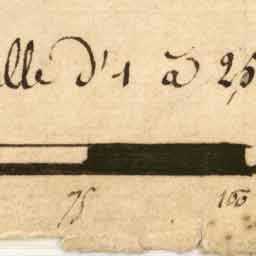 elle d'1 à 25
75 100